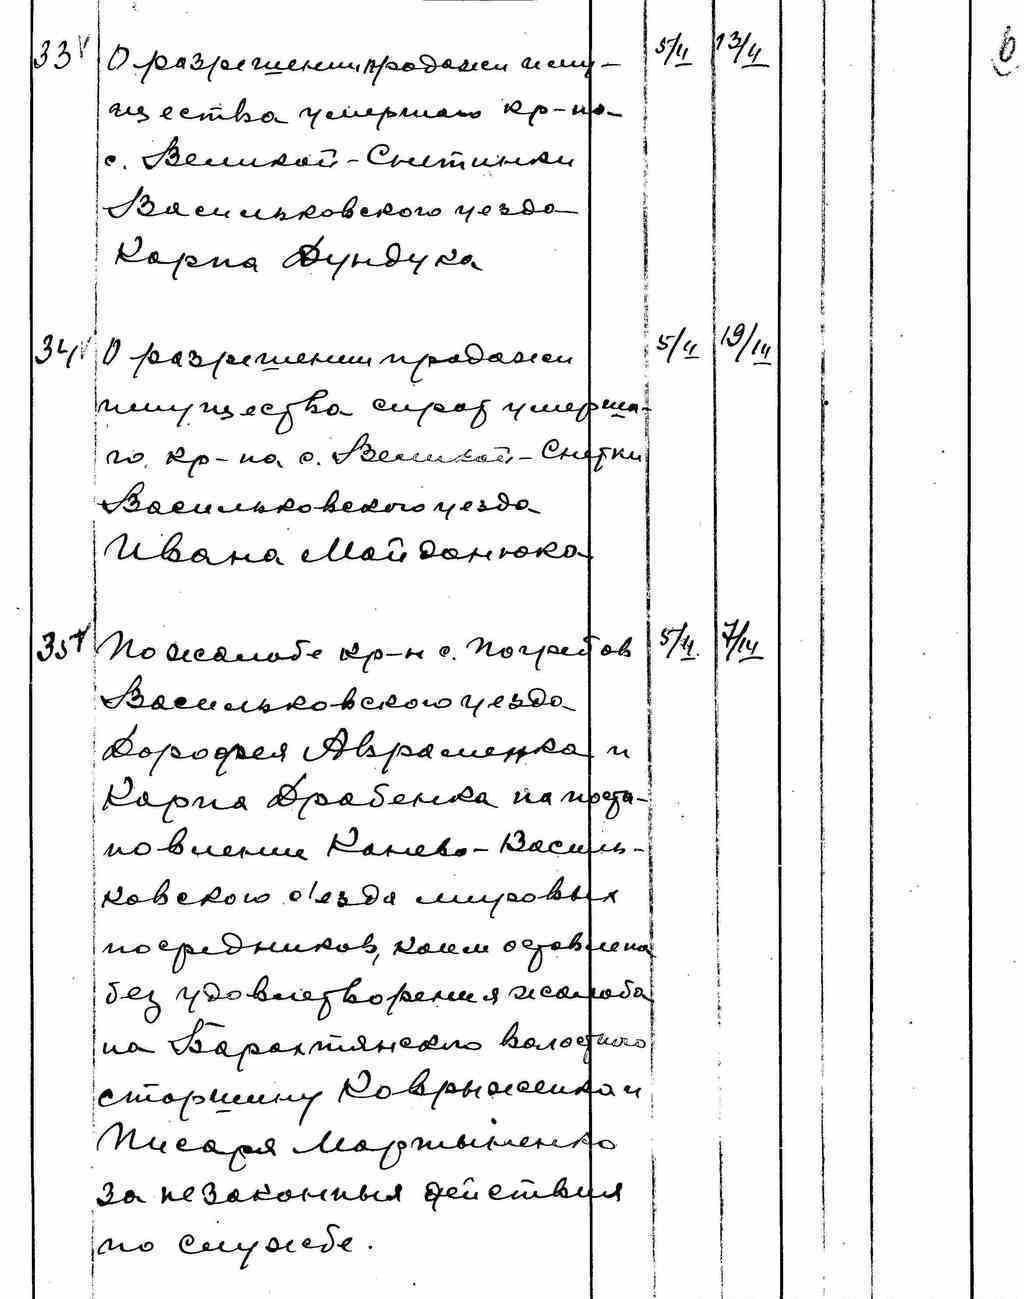 33 О разрешении продажи иму- 5/II 13/II 6
щества умершаго кр-на
с. Великой-Снитинки
Васильковского уезда
Карпа Дундука
34 О разрешении продажи 5/II 19/III
имущества сирот умерша-
го кр-на с. Великой-Снетки
Васильковского уезда
Ивана Майданюка
35 По жалобе кр-н с. Погребов 5/II 7/III
Васильковского уезда
Дорофея Авраменка и
Карпа Драбенка на поста-
новление Канево-Василь-
ковского с'езда мировых
посредников, коим оставлена
без удовлетворения жалоба
на Барахтянского волостного
старшину Коврыженка и
Писаря Мартыненко
за незаконныя действия
по службе.